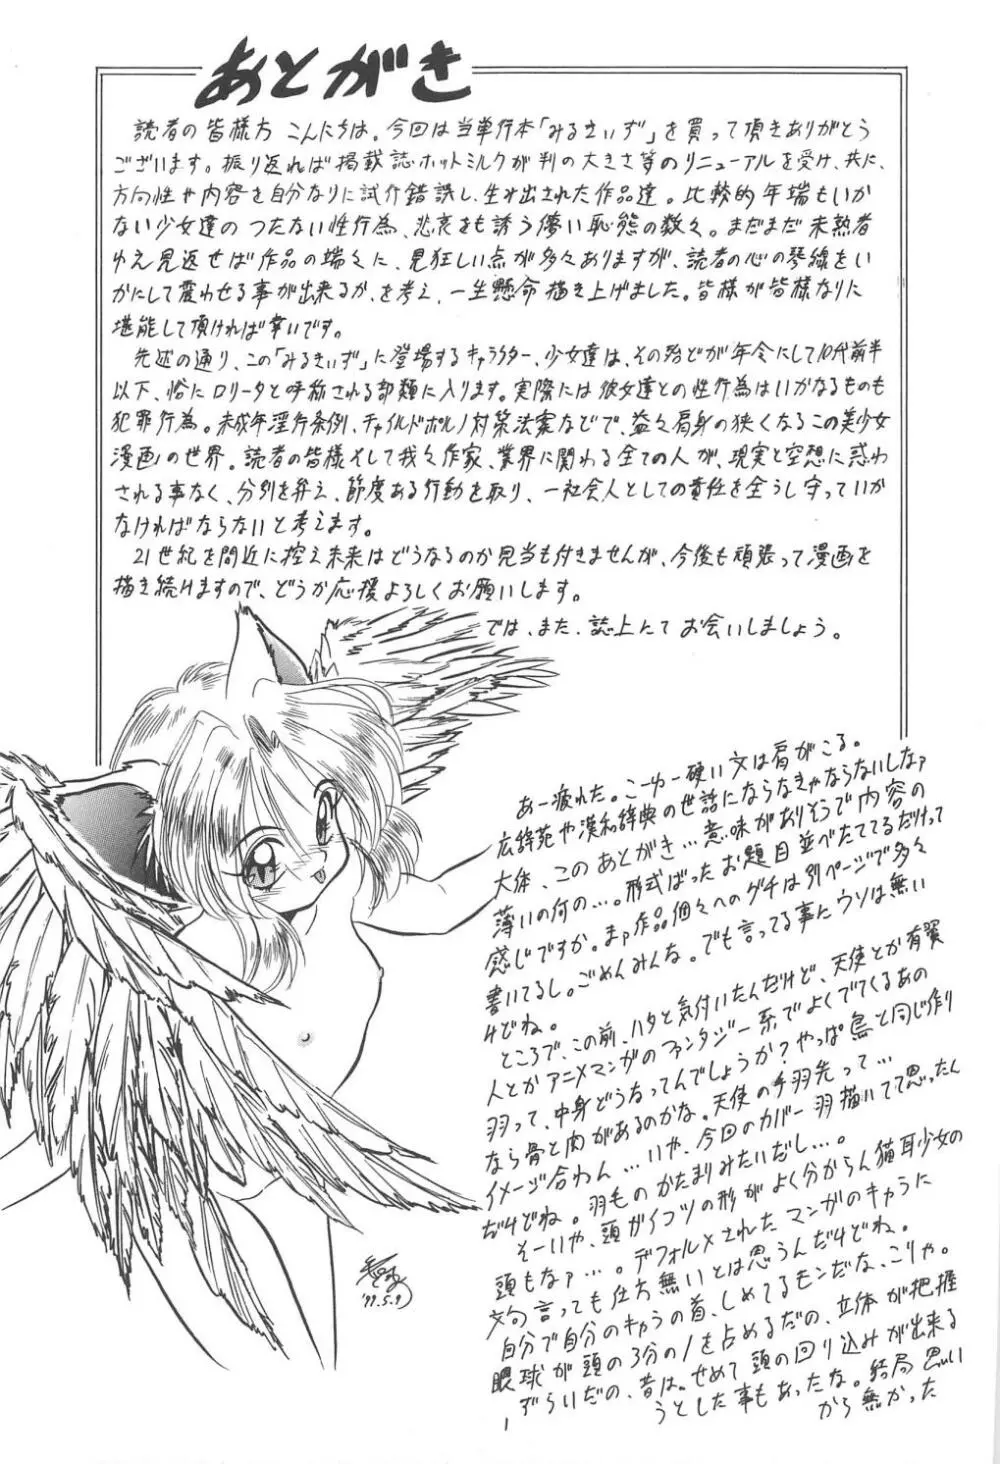 あとがき
読者の皆様方 こんにちは。今回は当単行本「みるきぃず」を買って頂きありがとう
ございます。振り返れば掲載誌ホットミルクが判の大きさ等のリニューアルを受け、共に、
方向性や内容を自分なりに試行錯誤し、生み出された作品達。比較的年端もいか
ない少女達のつたない性行為、悲哀をも誘う儚い恥態の数々。まだまだ未熟者
ゆえ見返せば作品の端々に、見狂しい点が多々ありますが、読者の心の琴線をい
かにして震わせる事が出来るか、を考え、一生懸命描き上げました。皆様が皆様なりに
堪能して頂ければ幸いです。
先述の通り、この「みるきぃず」に登場するキャラクター、少女達は、その殆どが年令にして10代前半
以下、俗にロリータと呼称される部類に入ります。実際には彼女達との性行為はいかなるものも
犯罪行為。未成年淫行条例、チャイルドポルノ対策法案などで、益々肩身の狭くなるこの美少女
漫画の世界。読者の皆様そして我々作家、業界に関わる全ての人が、現実と空想に惑わ
される事なく、分別を弁え、節度ある行動を取り、一社会人としての責任を全うし守っていか
なければならないと考えます。
21世紀を間近に控え未来はどうなるのか見当も付きませんが、今後も頑張って漫画を
描き続けますので、どうか応援よろしくお願いします。
では、また、誌上にてお会いしましょう。
あー疲れた。こーゆー硬い文は肩がこる。
広辞苑や漢和辞典の世話にならなきゃならないしなァ
大体、このあとがき…意味がありそうで内容の
薄いの何の…。形式ばったお題目並べたててるだけって
感じですか。まァ作品個々へのグチは別ページで多々
書いてるし。ごめんみんな。でも言ってる事にウソは無い
けどね。
ところで、この前、ハタと気付いたんだけど、天使とか有翼
人とかアニメマンガのファンタジー系でよくでてくるあの
羽って、中身どうなってんでしょうか?やっぱ鳥と同じ作り
なら骨と肉があるのかな。天使の手羽先って…
イメージ合わん…いや、今回のカバー羽描いてて思ったん
だけどね。羽毛のかたまりみたいだし…。
そーいや、頭がイコツの形がよく分からん猫耳少女の
頭もなァ…。デフォルメされたマンガのキャラに
文句言っても仕方無いとは思うんだけどね。
自分で自分のキャラの首、しめてるモンだな、こりゃ。
眼球が頭の3分の1を占めるだの、立体が把握
ずらいだの、昔は。せめて頭の回り込みが出来る
うとした事もあったな。結局思い
から無かった
'99.5.9